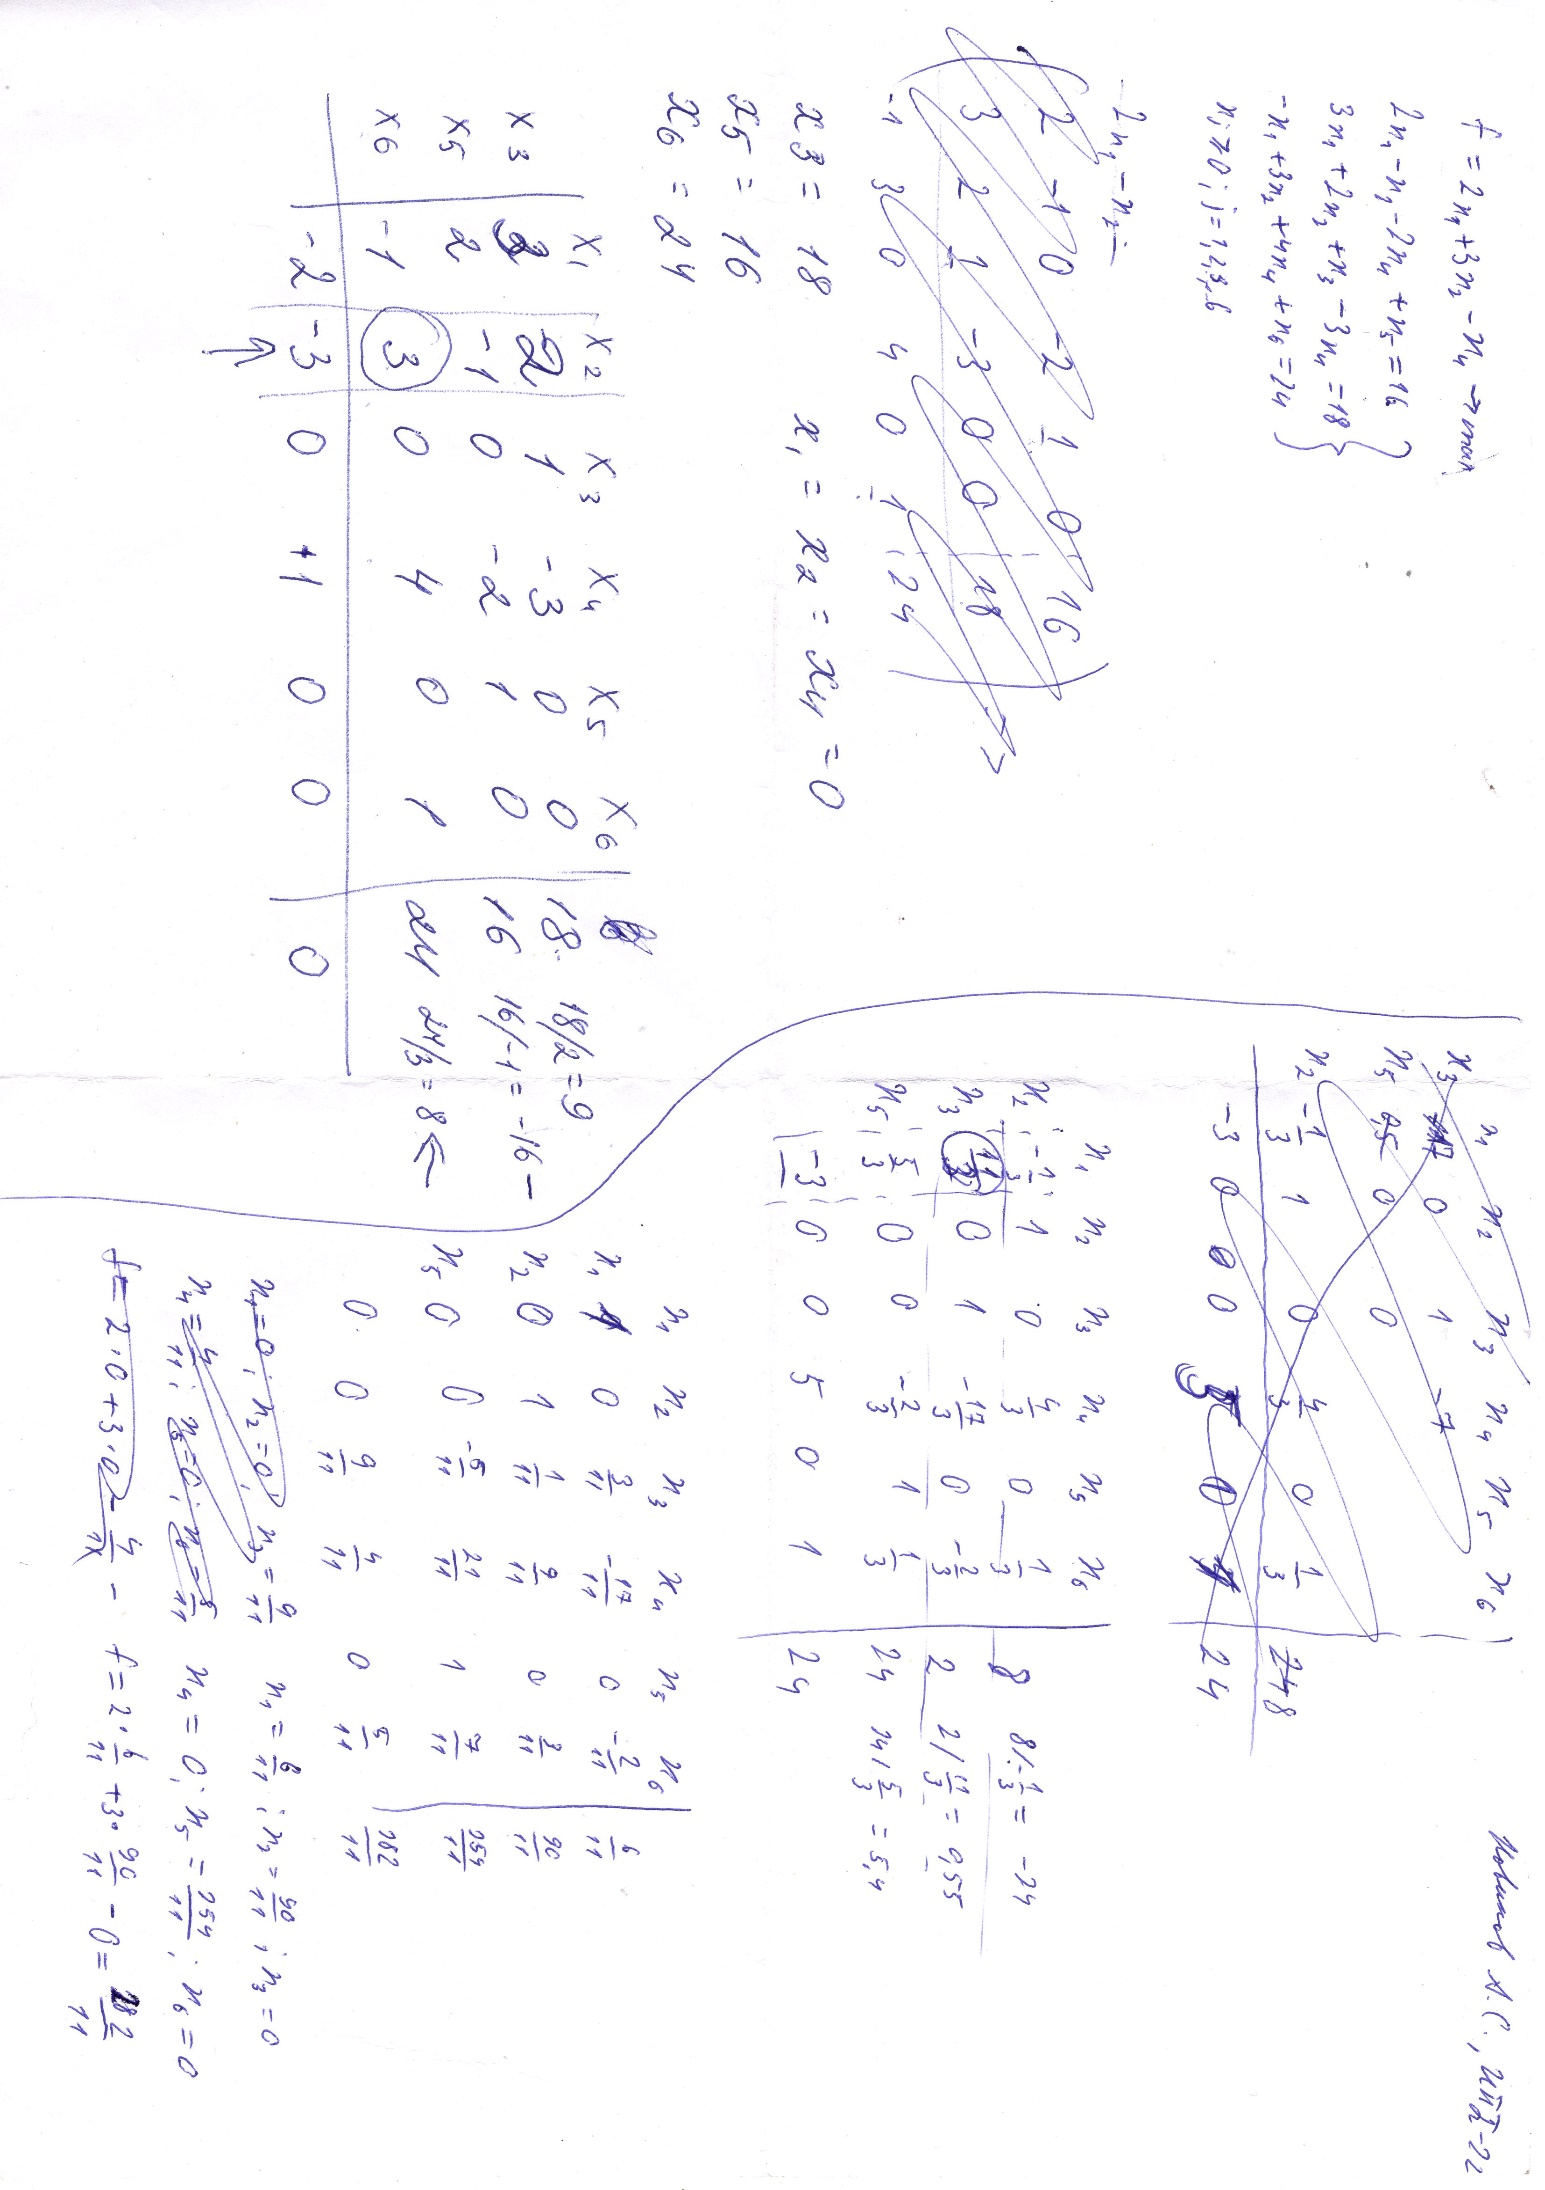 f = 2x₁ + 3x₂ − x₄ → max
2x₁ − x₂ − 2x₄ + x₅ = 16
3x₁ + 2x₂ + x₃ − 3x₄ = 18
−x₁ + 3x₂ + 4x₄ + x₆ = 24
xⱼ ≥ 0; j = 1,2,3..6
2x₁ − x₂ −
2 −1 0 −2 1 0 16
3 2 1 −3 0 0 18
−1 3 0 4 0 1 24
x3 = 18 x₁ = x₂ = x₄ = 0
x5 = 16
x6 = 24
x₁ x₂ x₃ x₄ x₅ x₆ b
x3 3 2 1 −3 0 0 18 18/2 = 9
x5 2 −1 0 −2 1 0 16 16/−1 = −16 −
x6 −1 3 0 4 0 1 24 24/3 = 8 ←
−2 −3 0 +1 0 0 0
ИПZ-22
x₁ x₂ x₃ x₄ x₅ x₆
x₃ 0 1 −7
x₅ 0 0
x₂ −1/3 1 0 4/3 0 1/3 8
−3 0 0 5 0 1 24
x₁ x₂ x₃ x₄ x₅ x₆
x₂ −1/3 1 0 4/3 0 1/3 8 8/−1/3 = −24
x₃ 11/3 0 1 −17/3 0 −2/3 2 2/11/3 = 0,55
x₅ 5/3 0 0 −2/3 1 1/3 24 24/5/3 = 5,4
−3 0 0 5 0 1 24
x₁ x₂ x₃ x₄ x₅ x₆
x₁ 1 0 3/11 −17/11 0 −2/11 6/11
x₂ 0 1 1/11 9/11 0 3/11 90/11
x₅ 0 0 −5/11 21/11 1 7/11 254/11
0 0 9/11 4/11 0 5/11 282/11
x₁ = 0; x₂ = 0, x₃ = 9/11 x₁ = 6/11; x₂ = 90/11; x₃ = 0
x₄ = 4/11; x₅ = 0; x₆ = 5/11 x₄ = 0; x₅ = 254/11; x₆ = 0
f = 2·0 + 3·0 − 4/11 − f = 2·6/11 + 3·90/11 − 0 = 282/11